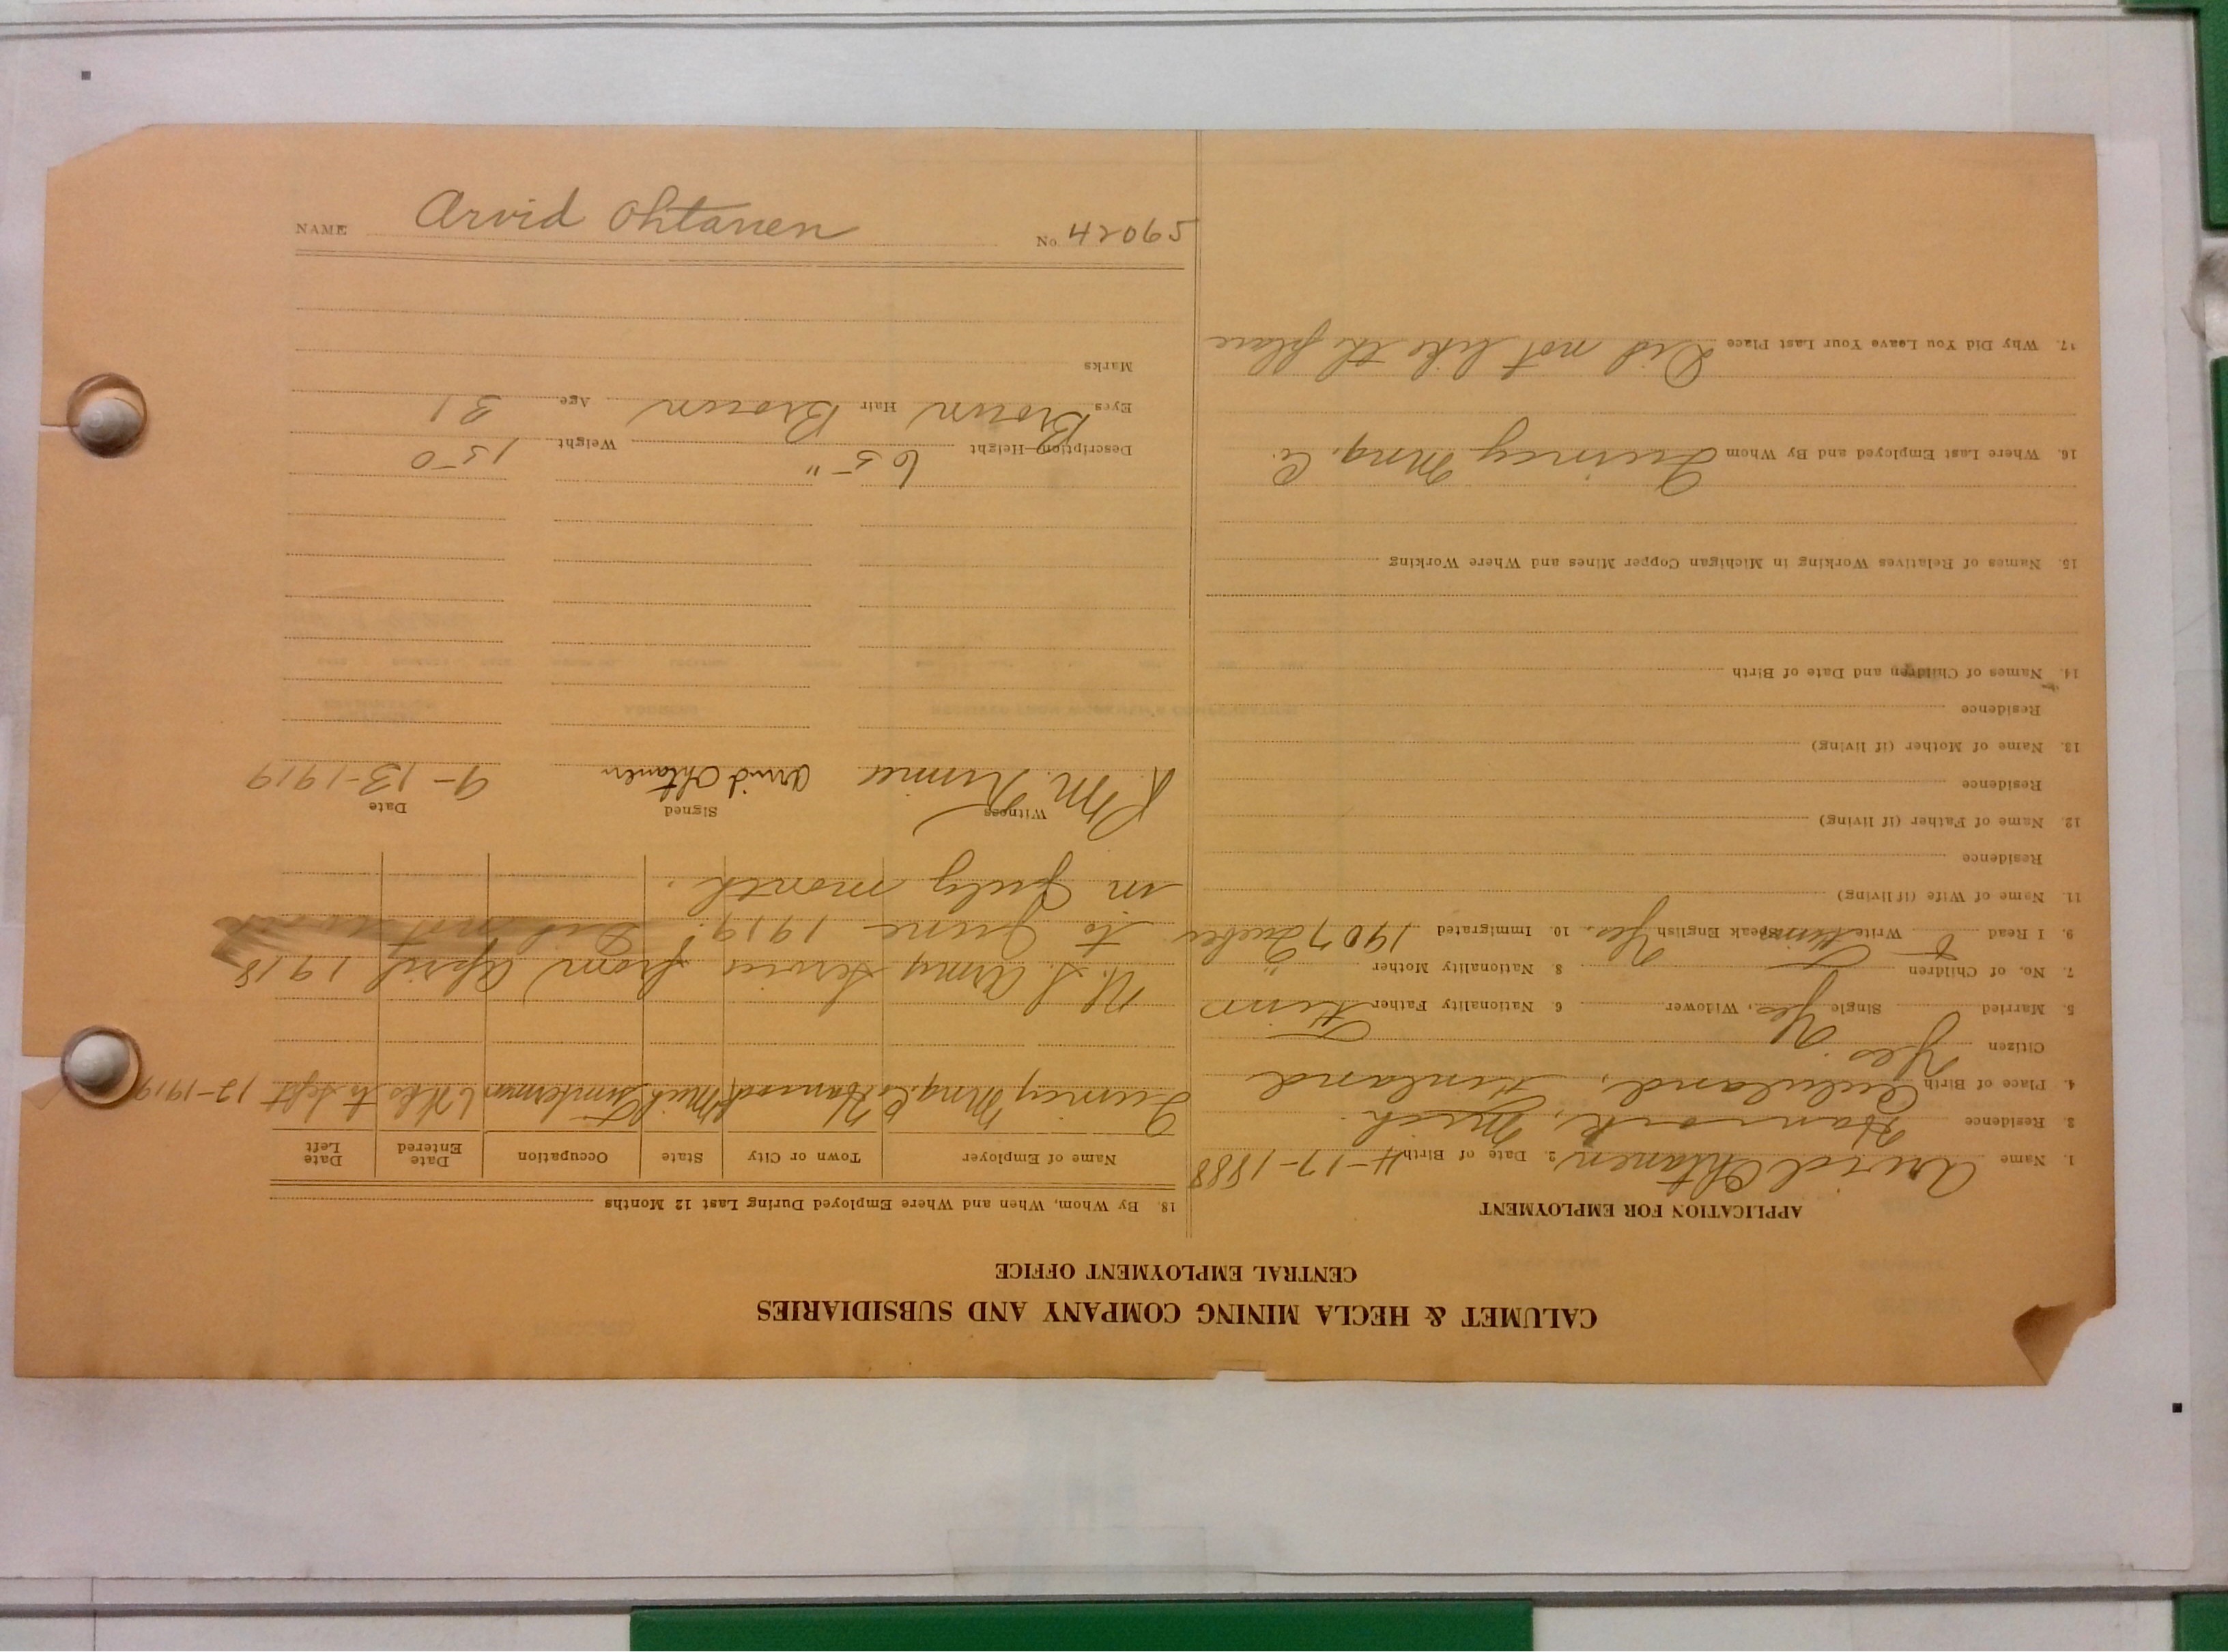 CALUMET & HECLA MINING COMPANY AND SUBSIDIARIES
CENTRAL EMPLOYMENT OFFICE
APPLICATION FOR EMPLOYMENT
1. Name Arvid Ohtanen 2. Date of Birth 4-17-1888
3 Residence Hancock, Mich.
4. Place of Birth Finland
Citizen Yes
5. Married Single Yes, Widower 6 Nationality Father Finn
7. No. of Children 8 Nationality Mother
9. I Read Write Finn Speak English Yes. 10. Immigrated 1907 Quebec
11. Name of Wife (if living)
Residence
12. Name of Father (if living)
Residence
13. Name of Mother (if living)
Residence
14. Names of Children and Date of Birth
15. Names of Relatives Working in Michigan Copper Mines and Where Working
16. Where Last Employed and By Whom Quincy Mng. Co.
17. Why Did You Leave Your Last Place Did not like the place
18. By Whom, When and Where Employed During Last 12 Months
Name of Employer Town or City State Occupation Date Entered Date Left
Quincy Mng. Co Hancock Mich Timberman 6 Wks to Sept 12-1919
U.S. Army Service from April 1918
to June 1919. Did not work
in July month.
Witness Signed Date
Arvid Ohtanen 9-13-1919
Description—Height 65" Weight 150
Eyes Brown Hair Brown Age 31
Marks
NAME Arvid Ohtanen No. 42065